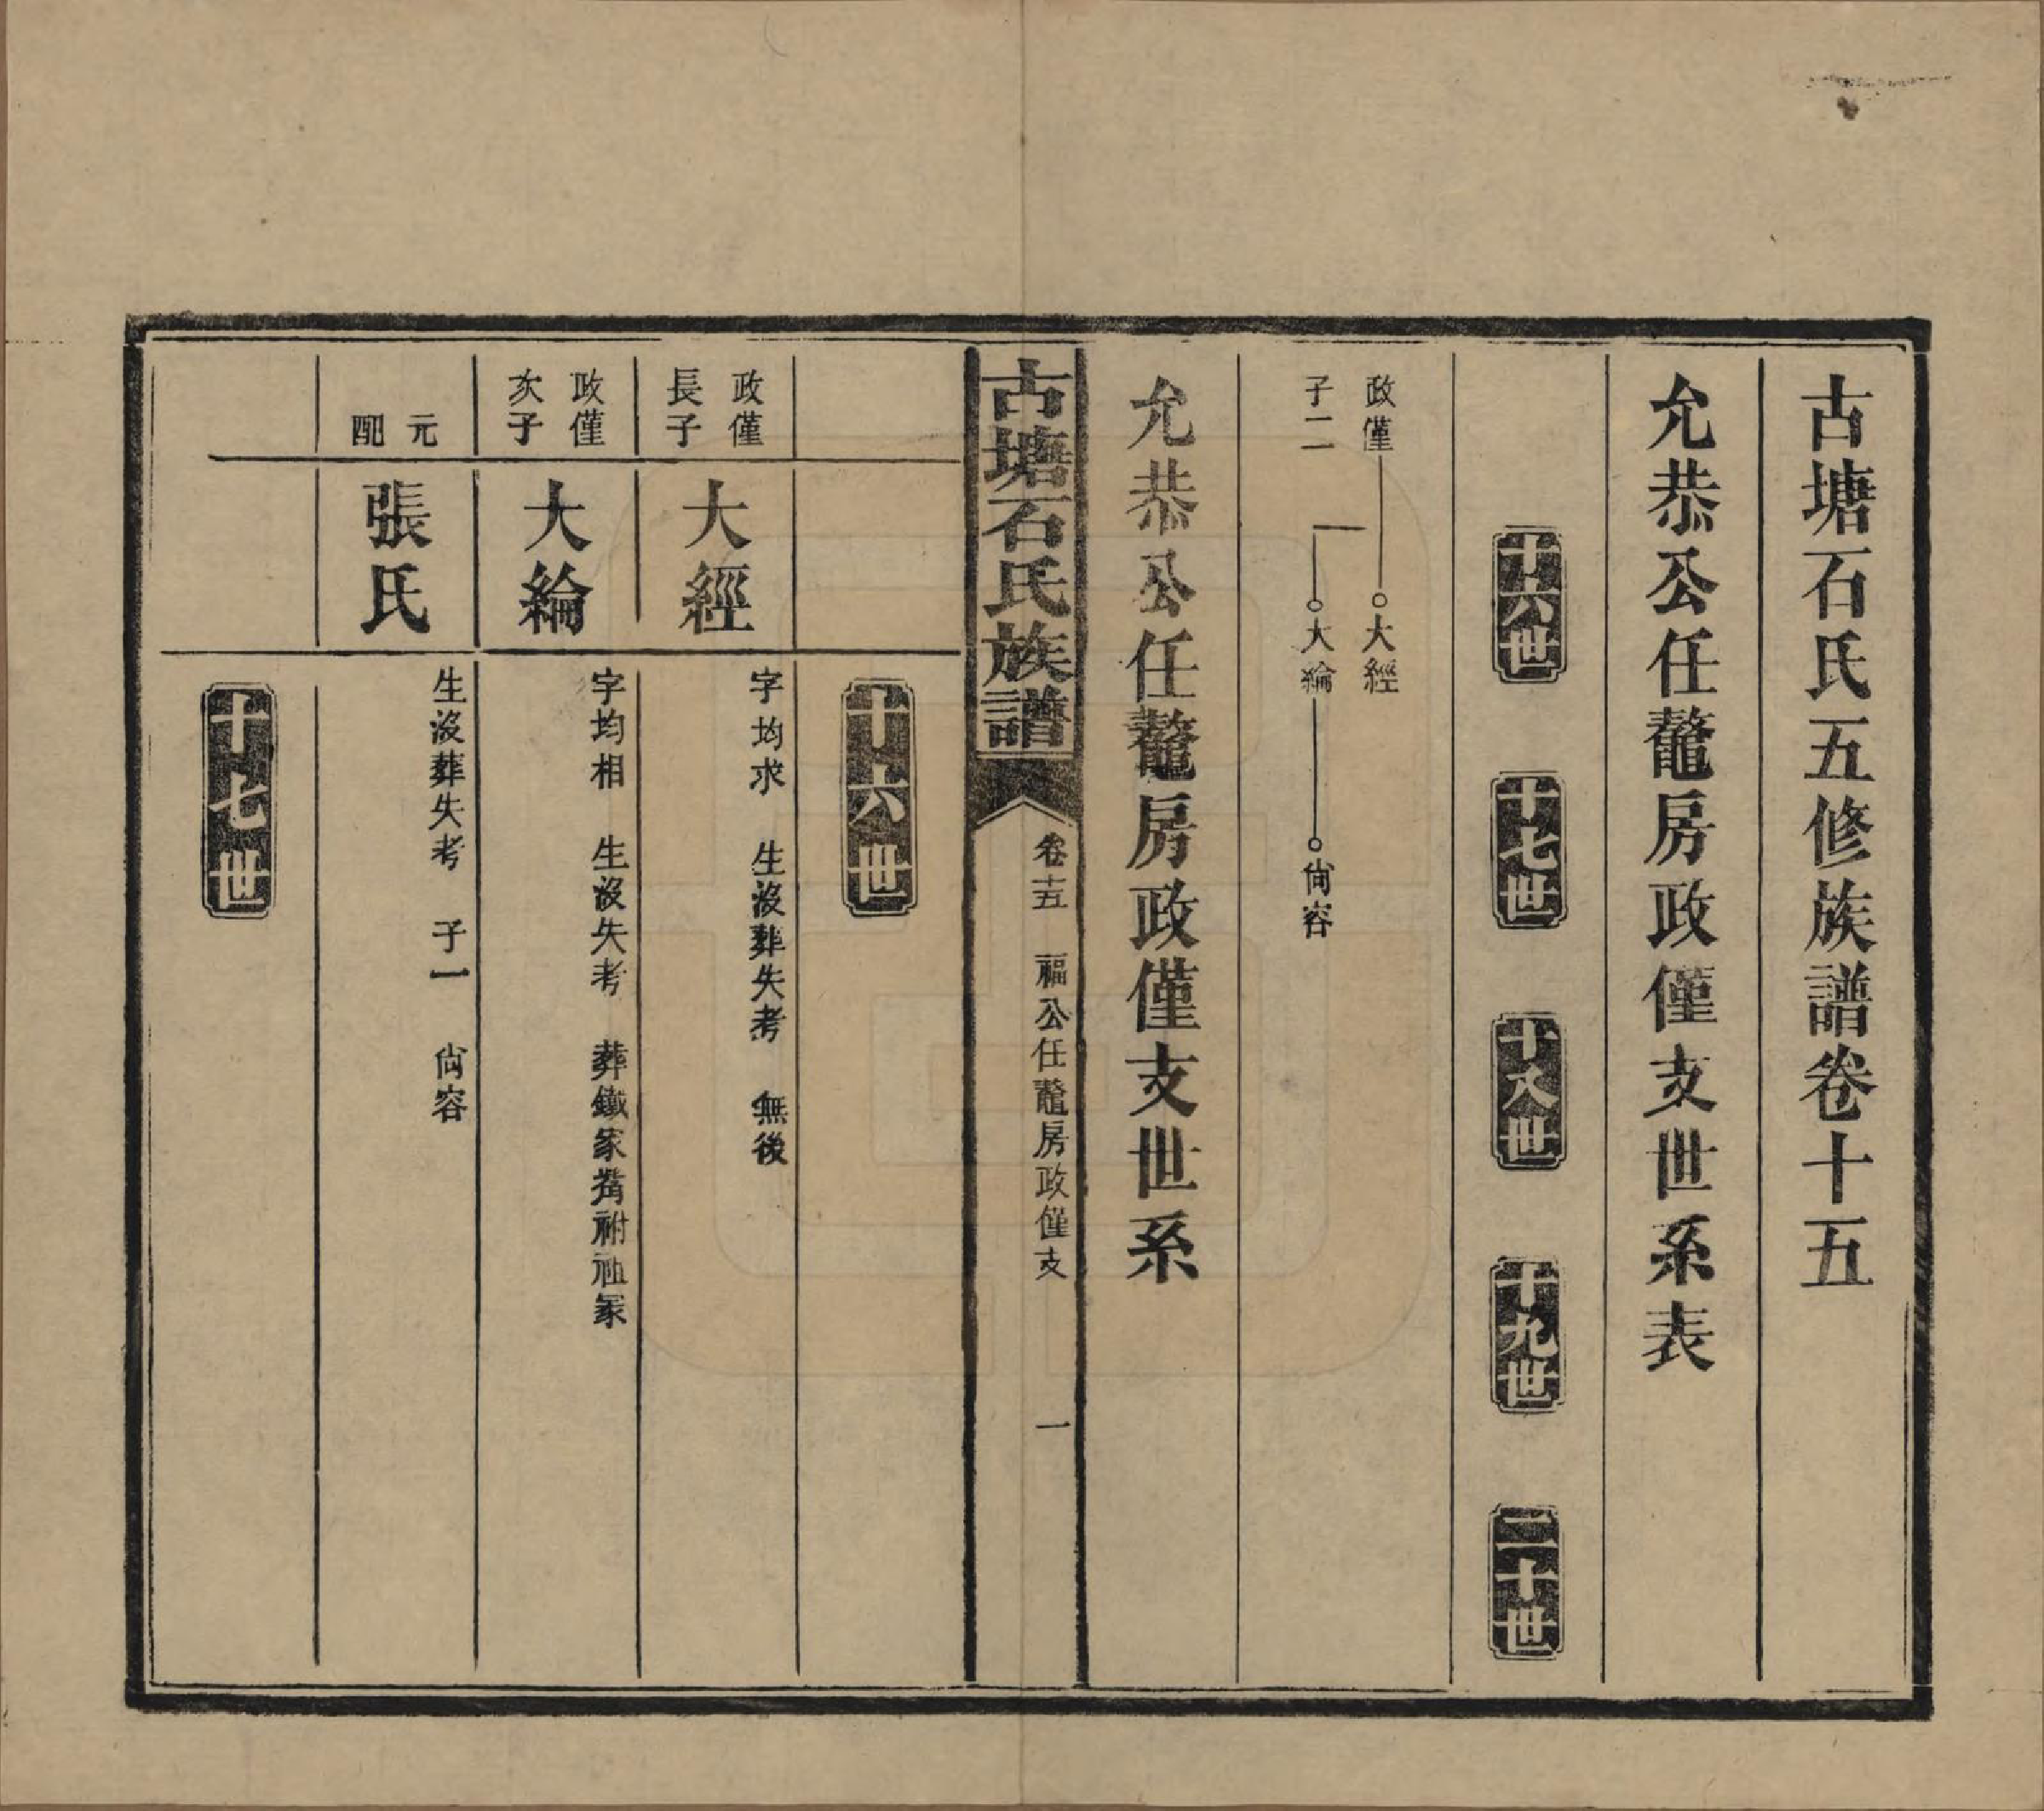 古塘石氏五修族譜卷十五
允恭公任鼇房政僅支世系表
十六世 十七世 十八世 十九世 二十世
政僅 大經
子二 大綸 尙容
允恭公任鼇房政僅支世系
古塘石氏族譜 卷十五 福公任鼇房政僅支 一
十六世
政僅長子 大經 字均求 生沒葬失考 無後
政僅次子 大綸 字均相 生沒失考 葬鐵家𭶑祔祖冢
元配 張氏 生沒葬失考 子一 尙容
十七世